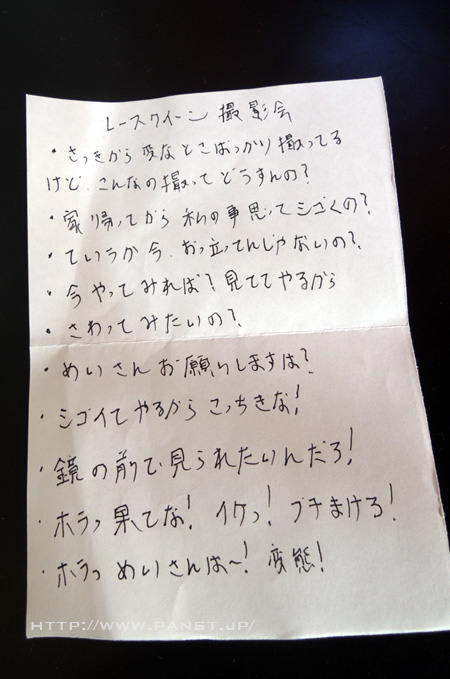 レースクイーン 撮影会
・さっきから 変なとこばっかり 撮ってる
けど、こんなの撮って どうすんの?
・家帰ってから 私の事思って シゴくの?
・ていうか今、おっ立ってんじゃないの?
・今 やって みれば? 見ててやるから
・さわって みたいの?
・めいさん お願いしますは?
・シゴイてやるから こっちきな!
・鏡の前で 見られたいんだろ!
・ホラっ 果てな! イケっ! ブチまけろ!
・ホラっ めいさんは〜! 変態!
HTTP://WWW.PANST.JP/